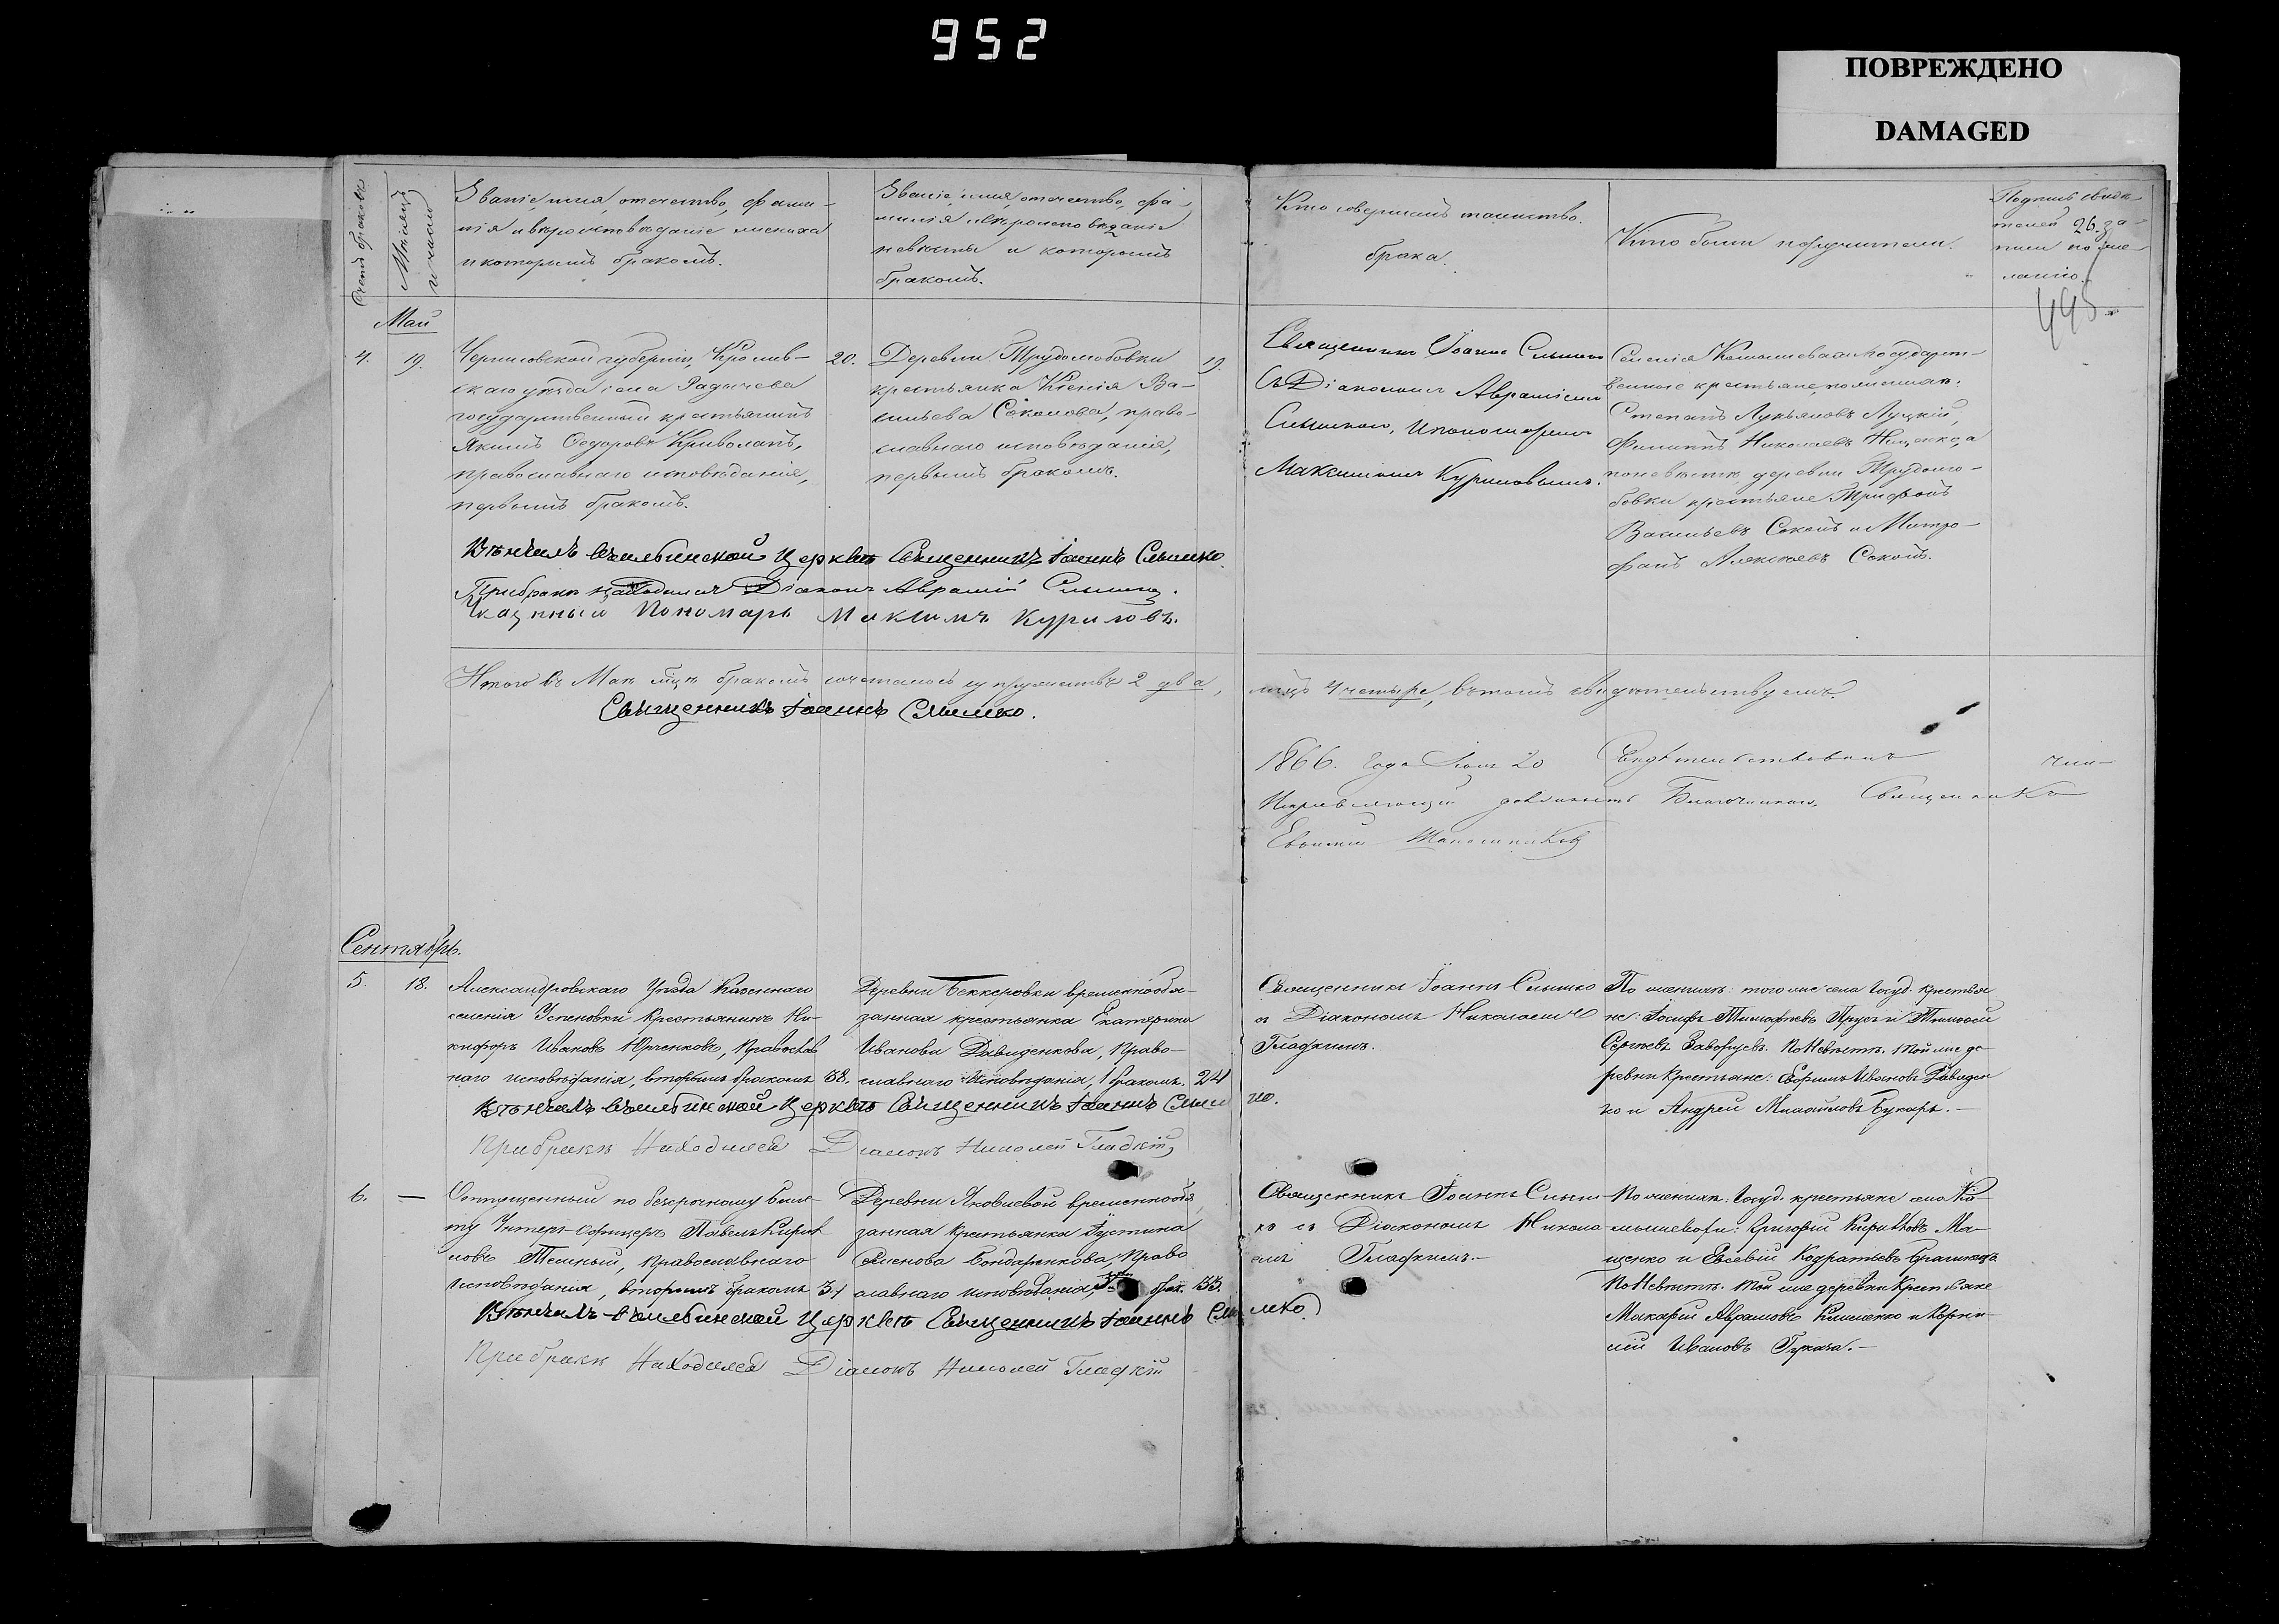 952
ПОВРЕЖДЕНО
DAMAGED
Счетъ браковъ
Мѣсяцъ и число
Званіе, имя, отечество, фами-
лія и вѣроисповѣданіе жениха
и которымъ бракомъ.
Званіе, имя, отечество, фа-
милія и вѣроисповѣданіе
невѣсты и которымъ
бракомъ.
Кто совершалъ таинство
брака.
Кто были поручители.
Подпись свидѣ-
телей за-
писи по же-
ланію.
495
Май
4. 19.
Черниговской губерніи, Кролев-
скаго уѣзда села Радичева
государственный крестьянинъ
Якимъ Ѳедоровъ Криволапъ,
православнаго исповѣданія,
первымъ бракомъ.
20.
Деревни Трудолюбовки
крестьянка Ксенія Ва-
сильева Соколова, право-
славнаго исповѣданія,
первымъ бракомъ.
19.
Священникъ Іоаннъ Слышко
съ Діакономъ Авраміемъ
Слышкою, и пономаремъ
Максимомъ Куриловымъ.
Селенія Камышеваки государст-
венные крестьяне, по женихѣ:
Степанъ Лукьяновъ Луцкій,
Филиппъ Николаевъ Нищенко, а
по невѣстѣ деревни Трудолю-
бовки крестьяне Трифонъ
Васильевъ Соколъ и Митро-
фанъ Алексѣевъ Соколъ.
Вѣнчалъ Священникъ Іоаннъ Слышко.
При бракѣ находился Діаконъ Аврамій Слышко.
Указнный Пономарь Максимъ Куриловъ.
Итого въ Маѣ мцѣ бракомъ сочеталось супружествъ 2 два,
лицъ 4 четыре, въ томъ свидѣтельствуемъ.
Священникъ Іоаннъ Слышко.
1866. Года 20 Свидѣтельствовалъ
должность Благочиннаго, Священникъ
Сентябрь.
5. 18.
Александровскаго Уѣзда Казеннаго
селенія Успеновки Крестьянинъ Ни-
кифоръ Ивановъ Юрченковъ, Православ
наго исповѣданія, вторымъ бракомъ
38.
Деревни Беккеровки временнообя-
занная крестьянка Екатерина
Иванова Давиденкова, Право-
славнаго исповѣданія, 1 бракомъ.
24
Священникъ Іоаннъ Слышко
съ Діакономъ Николаемъ
Гладкимъ.
По женихѣ: того же села Госуд. крестья
не: Іосифъ Тимофѣевъ Прусъ и Тимофей
Сергѣевъ Заворуевъ. По Невѣстѣ: той же де-
ревни Крестьяне: Ефримъ Ивановъ Давиден
ко и Андрей Михайловъ Бухаръ.
Вѣнчалъ Священникъ Іоаннъ Слыш
ко.
При бракѣ Находился Діаконъ Николай Гладкій
6. —
Отпущенный по безсрочному биле-
ту Унтеръ-офицеръ Павелъ Кирил
ловъ Темный, православнаго
исповѣданія, вторымъ бракомъ
34
Деревни Яковлевой временнообя
занная Крестьянка Іустина
Семенова Бондаренкова, Право
славнаго исповѣданія,
33.
Священникъ Іоаннъ Слыш-
ко съ Діакономъ Никола-
емъ Гладкимъ.
По женихѣ: Госуд. крестьяне села Ка-
мышевахи: Григорій Кириловъ Ма-
щенко и Евсевій Кодратьевъ
По Невѣстѣ: той же деревни Крестьяне
Макарій Аврамовъ Клименко и Корни-
лій Ивановъ
Вѣнчалъ Священникъ Іоаннъ Слы
шко.
При бракѣ Находился Діаконъ Николай Гладкій